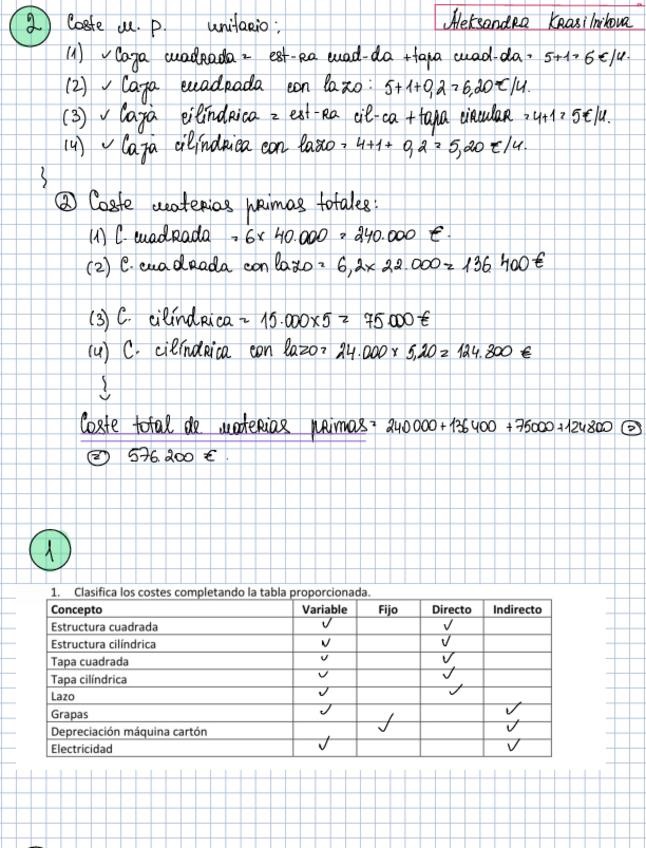 2 Coste M. P. unitario: Aleksandra Krasilnikova
(1) ✓ Caja cuadrada = est-ra cuad-da + tapa cuad-da = 5+1 = 6 €/u.
(2) ✓ Caja cuadrada con lazo: 5+1+0,2 = 6,20 €/u.
(3) ✓ Caja cilíndrica = est-ra cil-ca + tapa circular = 4+1 = 5 €/u.
(4) ✓ Caja cilíndrica con lazo = 4+1+ 0,2 = 5,20 €/u.
② Coste materias primas totales:
(1) C. cuadrada = 6 x 40.000 = 240.000 €.
(2) C. cuadrada con lazo = 6,2 x 22.000 = 136 400 €
(3) C. cilíndrica = 15.000 x 5 = 75.000 €
(4) C. cilíndrica con lazo = 24.000 x 5,20 = 124.800 €
Coste total de materias primas = 240000 + 136400 + 75000 + 124800 =
= 576.200 €.
1
1. Clasifica los costes completando la tabla proporcionada.
Concepto Variable Fijo Directo Indirecto
Estructura cuadrada ✓ ✓
Estructura cilíndrica ✓ ✓
Tapa cuadrada ✓ ✓
Tapa cilíndrica ✓ ✓
Lazo ✓ ✓
Grapas ✓ ✓
Depreciación máquina cartón ✓ ✓
Electricidad ✓ ✓